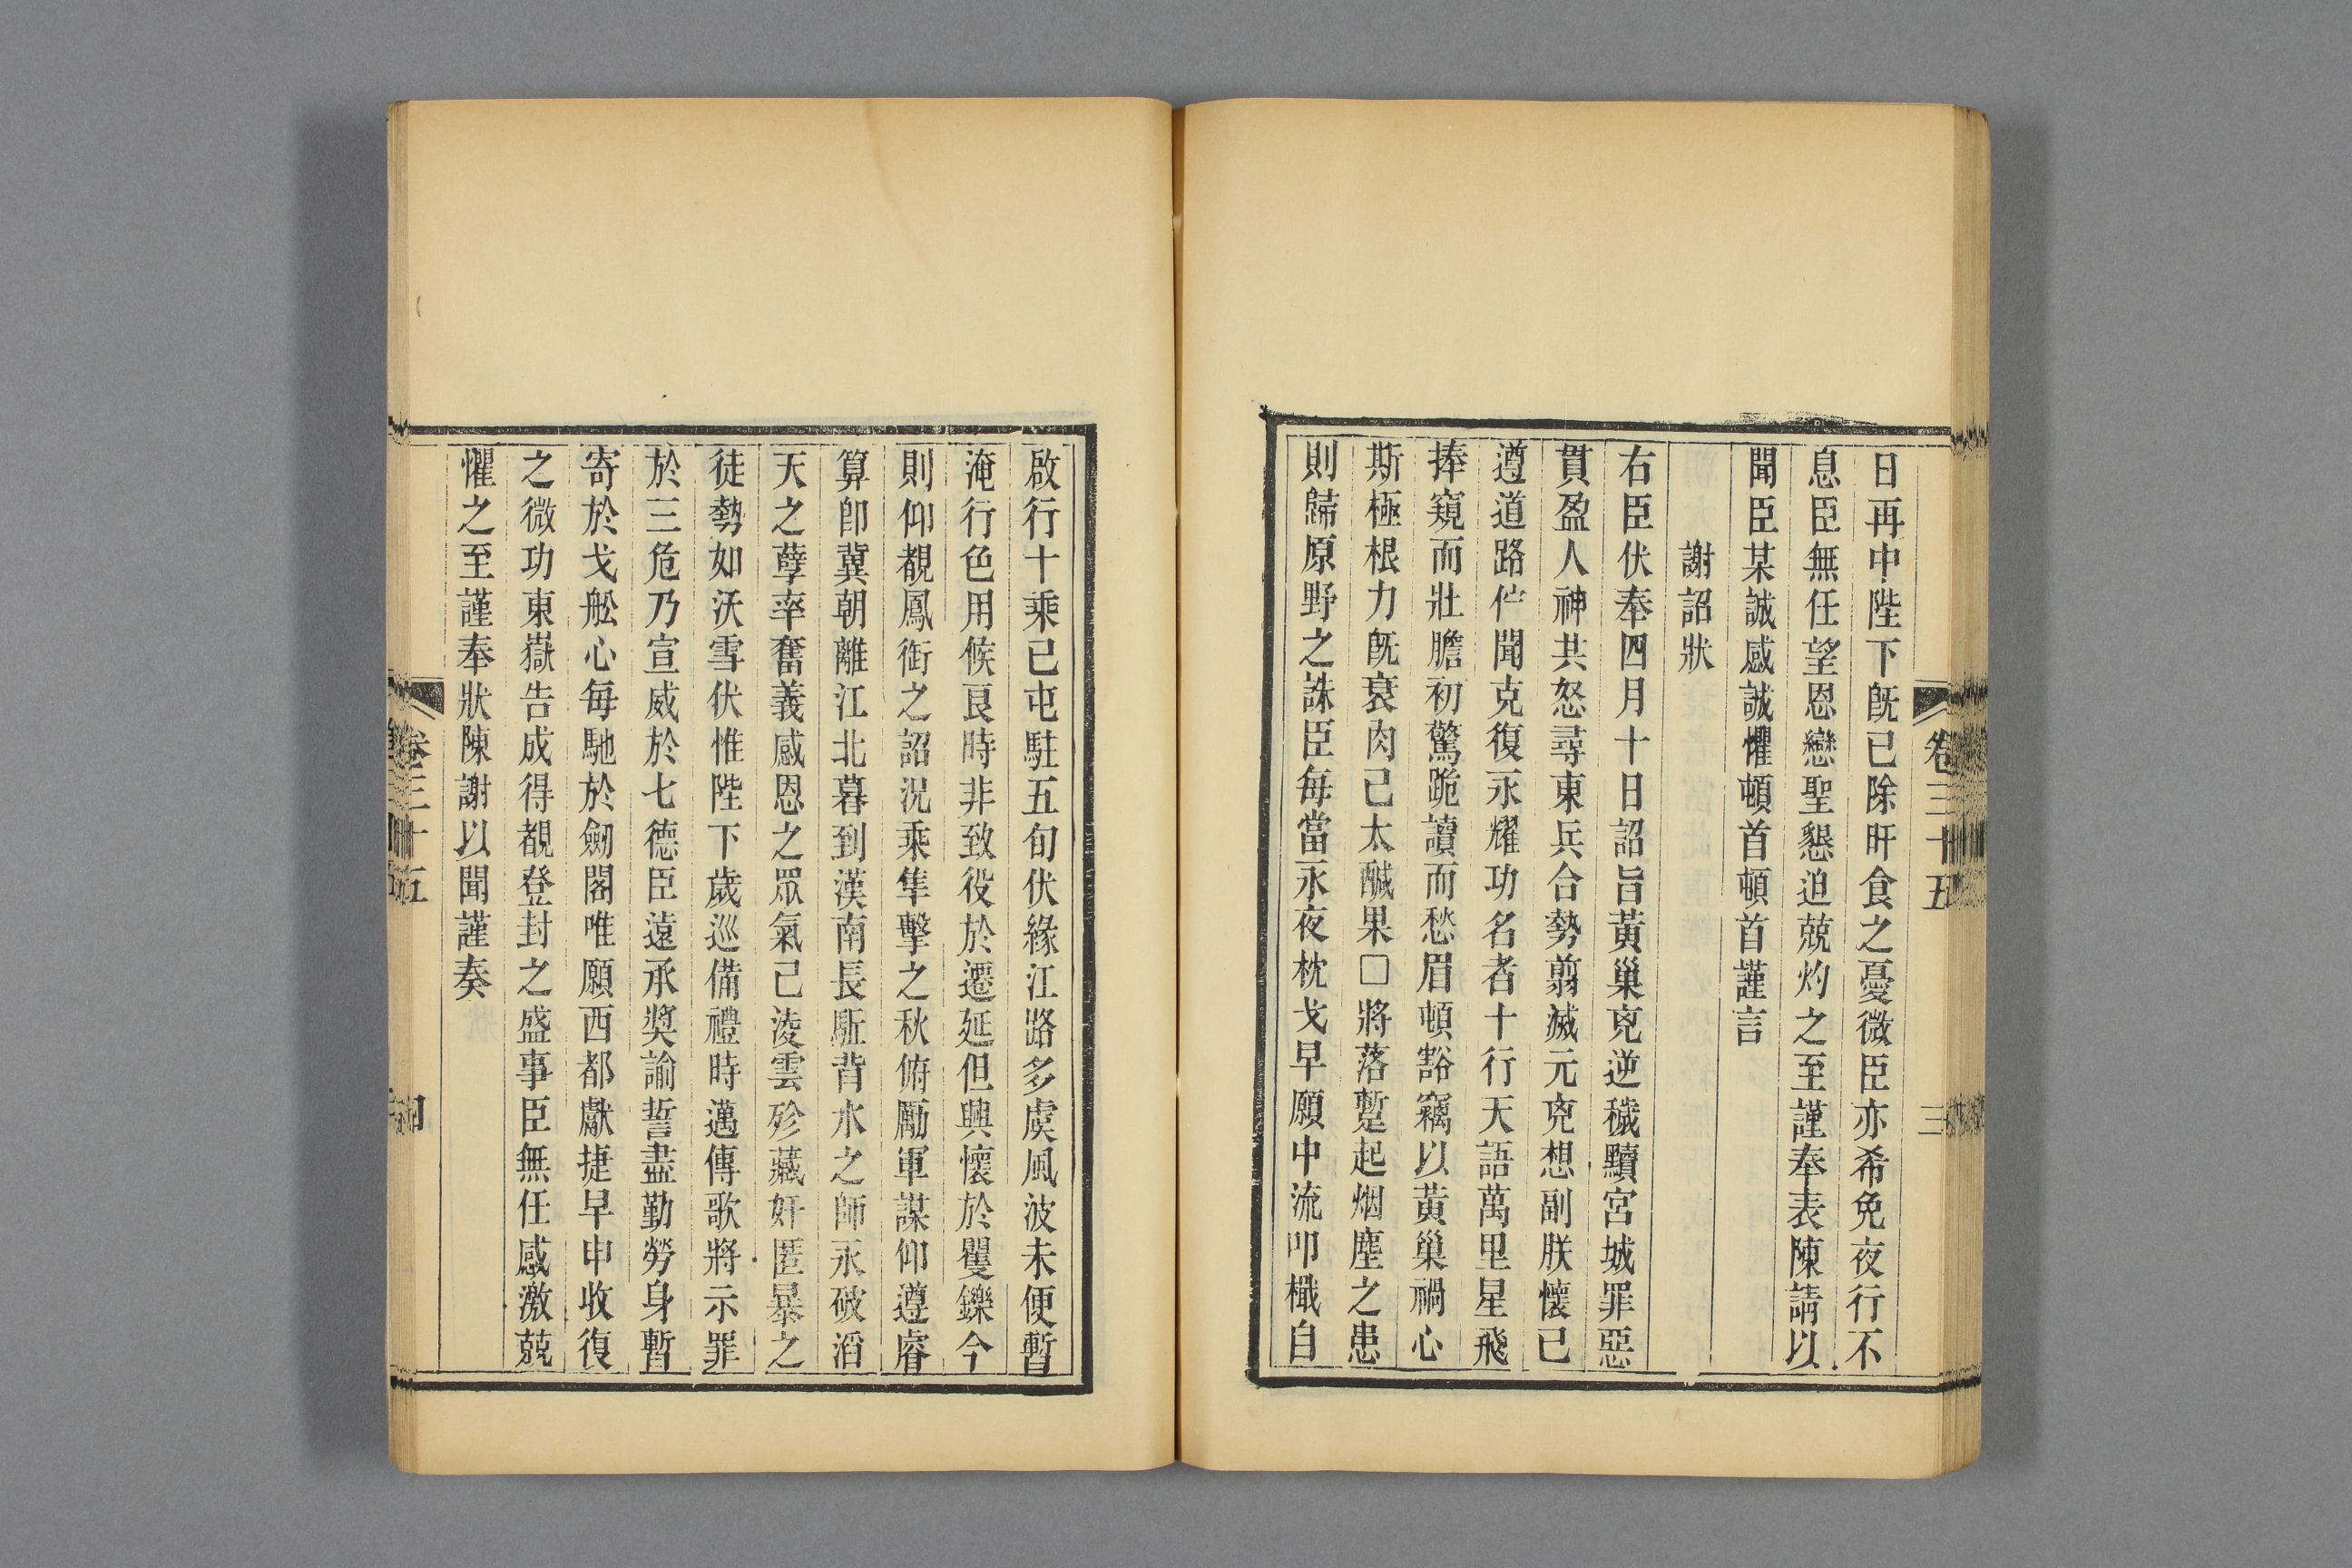 卷三十五 三
日再中陛下旣已除旰食之憂微臣亦希免夜行不
息臣無任望恩戀聖懇迫兢灼之至謹奉表陳請以
聞臣某誠感誠懼頓首頓首謹言
謝詔狀
右臣伏奉四月十日詔旨黃巢兇逆穢黷宮城罪惡
貫盈人神共怒尋東兵合勢翦滅元兇想副朕懷已
遵道路伫聞克復永耀功名者十行天語萬里星飛
捧窺而壯膽初驚跪讀而愁眉頓豁竊以黃巢禍心
斯極根力旣衰肉己太醎果□將落蹔起烟塵之患
則歸原野之誅臣每當永夜枕戈早願中流叩檝自
啟行十乘已屯駐五旬伏緣江路多虞風波未便暫
淹行色用候良時非致役於遷延但興懷於矍鑠今
則仰覩鳳銜之詔況乘隼擊之秋俯勵軍謀仰遵睿
算卽冀朝離江北暮到漢南長駈背水之師永破滔
天之孽率奮義感恩之眾氣己淩雲殄藏奸匿暴之
徒勢如沃雪伏惟陛下歲巡備禮時邁傳歌將示罪
於三危乃宣威於七德臣遠承獎諭誓盡勤勞身暫
寄於戈舩心每馳於劒閣唯願西都獻捷早申收復
之微功東嶽告成得覩登封之盛事臣無任感激兢
懼之至謹奉狀陳謝以聞謹奏
卷三十五